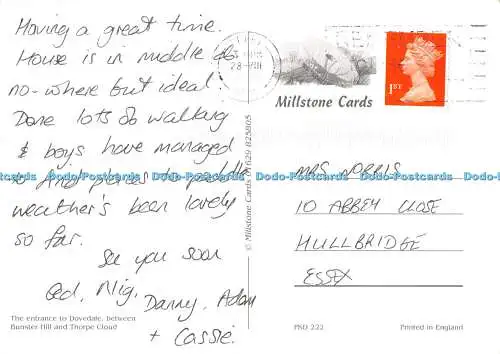 Having a great time.
House is in middle of
no-where but ideal.
Done lots of walking
& boys have managed
to find places to paddle
weather's been lovely
so far.
See you soon
Ged, Nig,
Danny, Adam
+ Cassie.
The entrance to Dovedale, between
Bunster Hill and Thorpe Cloud
© Millstone Cards 01629 825805
28
Millstone Cards
1ST
MRS NORRIS
10 ABBEY CLOSE
HULLBRIDGE
ESSEX
PSD 222
Printed in England
Dodo-Postcards Dodo-Postcards Dodo-Postcards Dodo-Postcards Dodo-Postcards